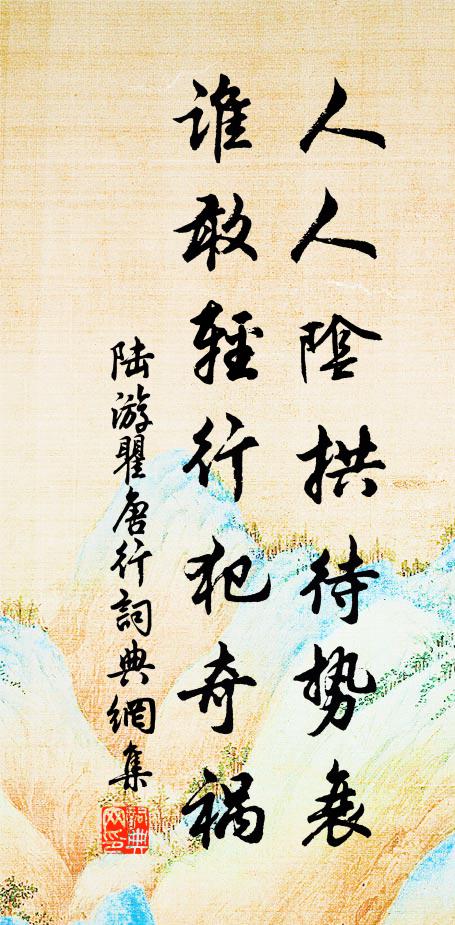 人人陰拱待势衰
谁敢輕行犯奇禍
陆游瞿唐行詞典網集
詞典網印